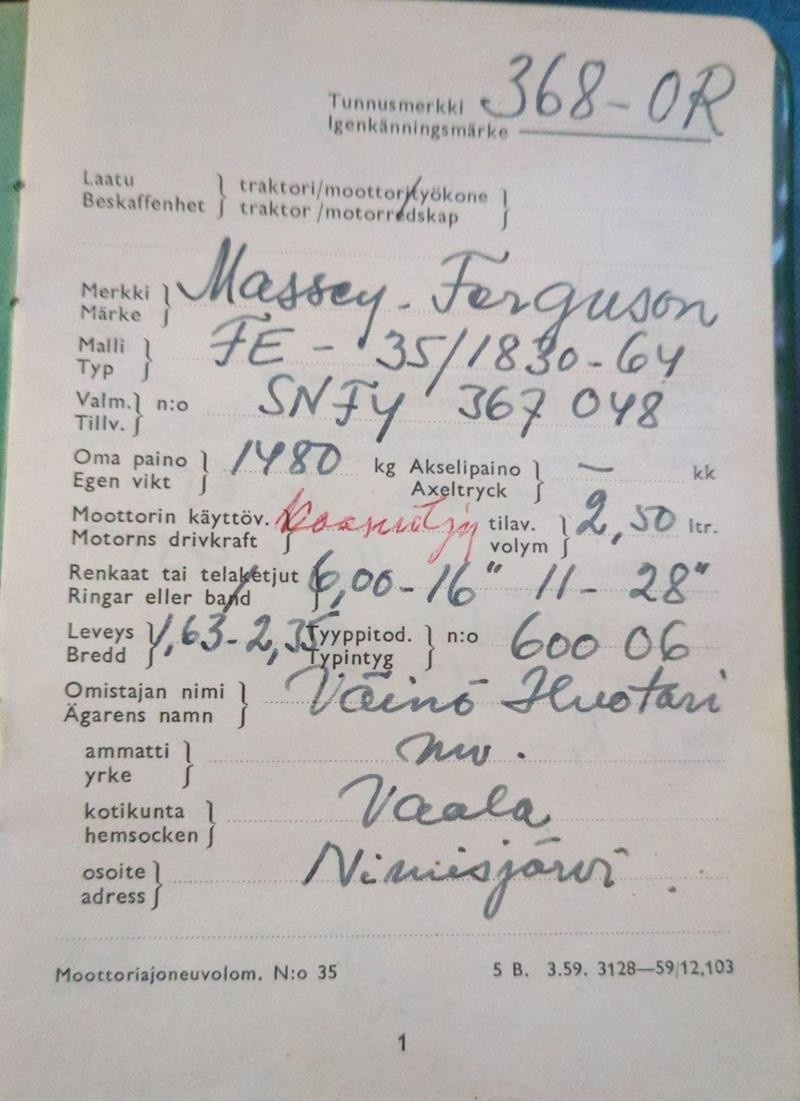 Tunnusmerkki 368-OR
Igenkänningsmärke
Laatu } traktori/moottorityökone }
Beskaffenhet } traktor/motorredskap }
Merkki } Massey-Ferguson
Märke
Malli } FE-35/1830-64
Typ
Valm. } n:o SNFY 367 048
Tillv.
Oma paino } 1480 kg Akselipaino } — kk
Egen vikt Axeltryck
Moottorin käyttöv. } tilav. } 2,50 ltr.
Motorns drivkraft volym
Renkaat tai telaketjut } 6,00-16" 11-28"
Ringar eller band
Leveys } 1,63-2,35 Tyyppitod. } n:o 600 06
Bredd Typintyg
Omistajan nimi } Väinö Huotari
Ägarens namn
ammatti } mv.
yrke
kotikunta } Vaala
hemsocken
osoite } Nimisjärvi.
adress
Moottoriajoneuvolom. N:o 35 5 B. 3.59. 3128—59/12,103
1